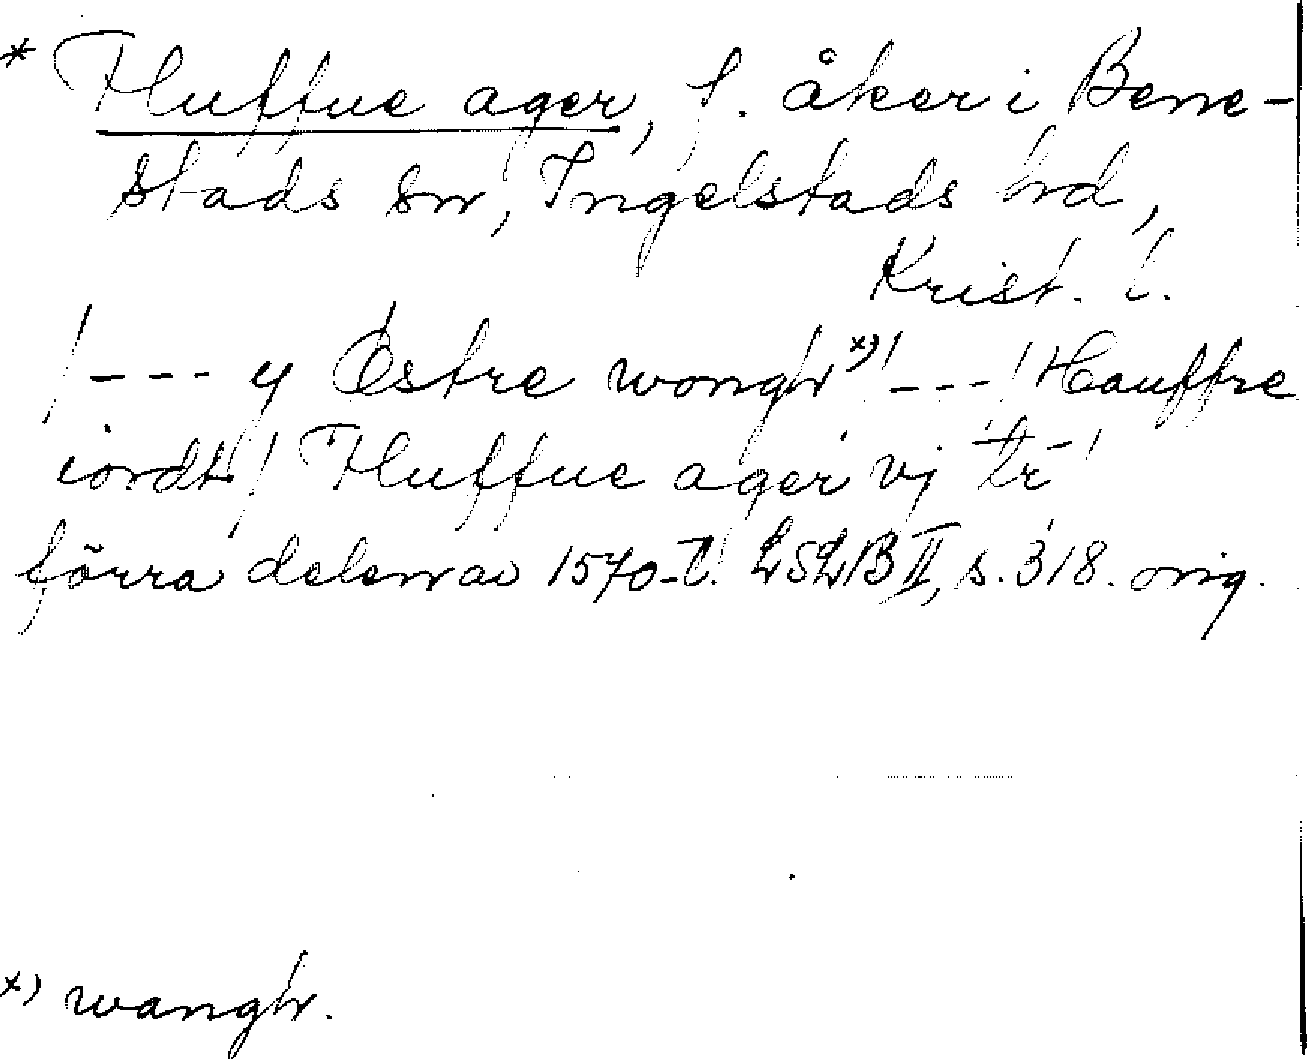 * Huffue ager, f. åker i Bene-
stads sn, Ingelstads hd,
Krist. l.
/--- y Østre wongh x)/---/Hauffre
iordt/ Huffue ager vj tr
förra delen av 1570-t. LSLB II, s. 318. orig.
x) wangh.